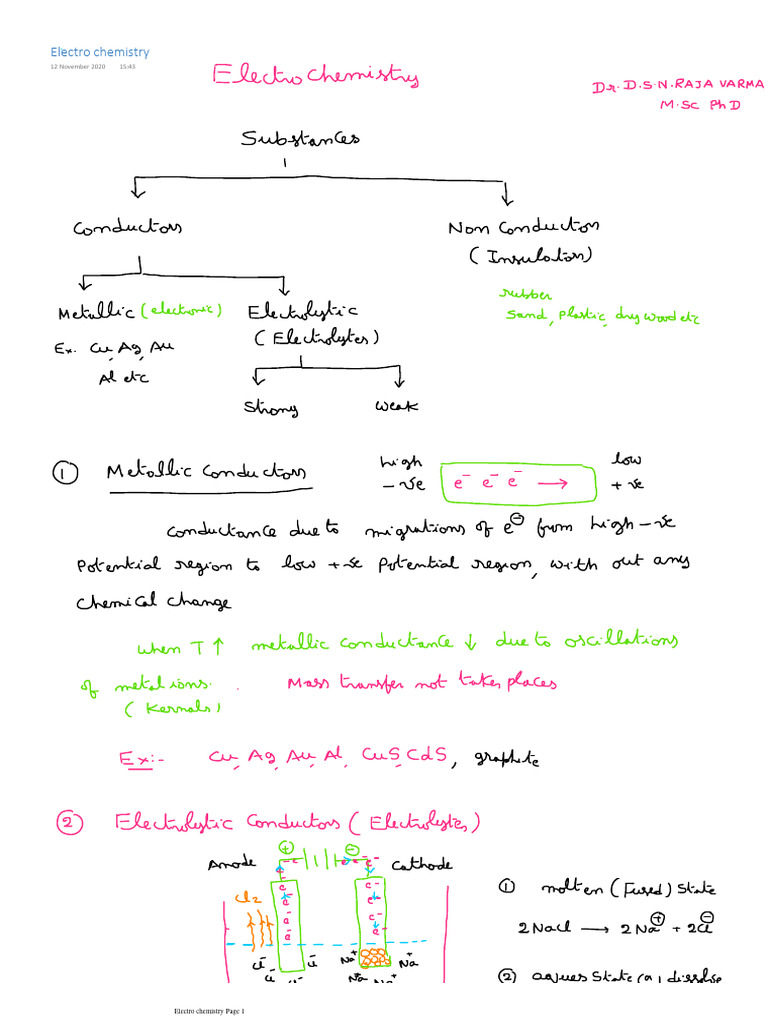 Electro chemistry
12 November 2020 15:43
Electro chemistry
Dr. D.S.N. RAJA VARMA
M.SC PhD
Substances
Conductors
Non Conductors
(Insulators)
Metallic (electronic)
Electrolytic
(Electrolytes)
Ex. Cu, Ag, Au
Al etc
rubber
Sand, plastic, dry wood etc
Strong
Weak
① Metallic Conductors
high
-ve
e⁻ e⁻ e⁻ →
low
+ve
Conductance due to migrations of e⊖ from high -ve
Potential region to low +ve Potential region, with out any
Chemical change
when T↑ metallic conductance ↓ due to oscillations
of metal ions. Mass transfer not takes places
(Kernals)
Ex:- Cu, Ag, Au, Al, CuS, CdS, graphite
② Electrolytic Conductors (Electrolytes)
Anode
+
-
Cathode
e⁻ e⁻ e⁻ e⁻
e⁻ e⁻
e⁻ e⁻
e⁻ e⁻
e⁻ e⁻
Cl2
Cl⁻ Cl⁻
Cl⁻ Cl⁻
Na⁺ Na⁺
Na⁺ Na⁺
① molten (Fused) State
2NaCl → 2Na⊕ + 2Cl⊖
② aques State (a)
Electro chemistry Page 1